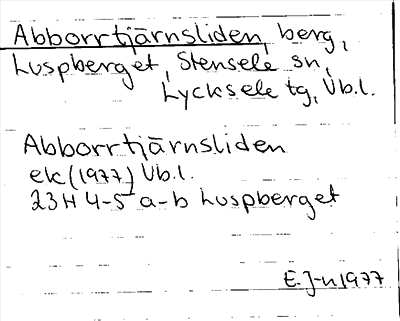 Abborrtjärnsliden, berg,
Luspberget, Stensele sn,
Lycksele tg, Vb.l.
Abborrtjärnsliden
ek (1977) Vb.l.
23H 4-5 a-b Luspberget
E.J-n 1977